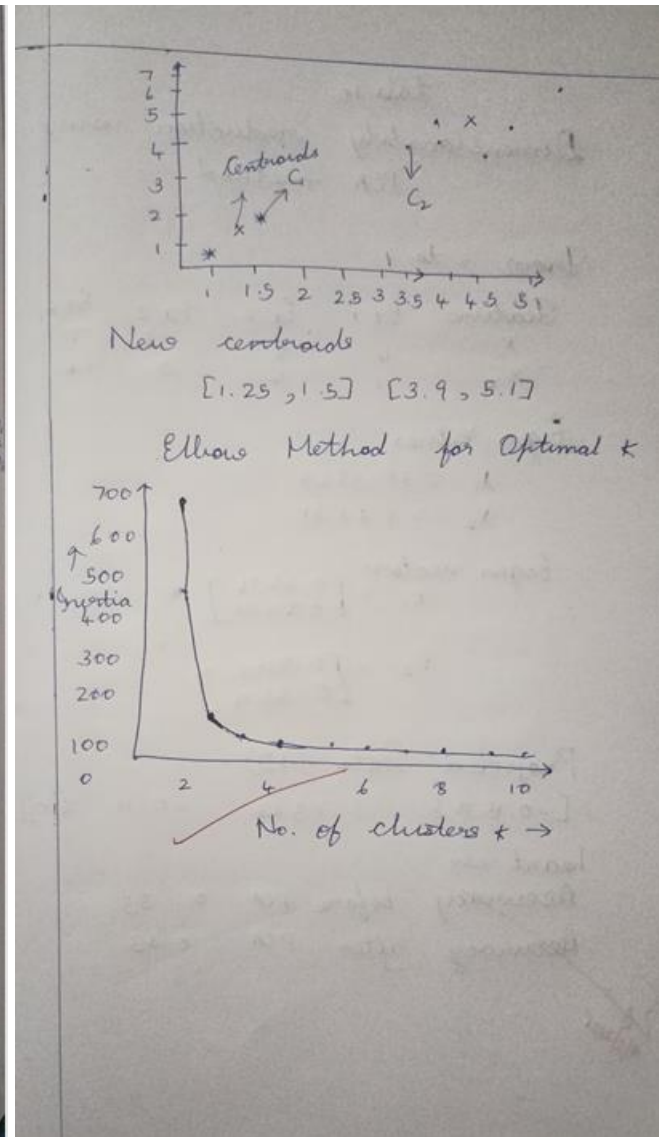 7
6
5
4
3
2
1
Centroids
C1
C2
1 1.5 2 2.5 3 3.5 4 4.5 5
New centroids
[1.25, 1.5] [3.9, 5.1]
Elbow Method for Optimal K
700
600
500
Inertia
400
300
200
100
0
2 4 6 8 10
No. of clusters K →